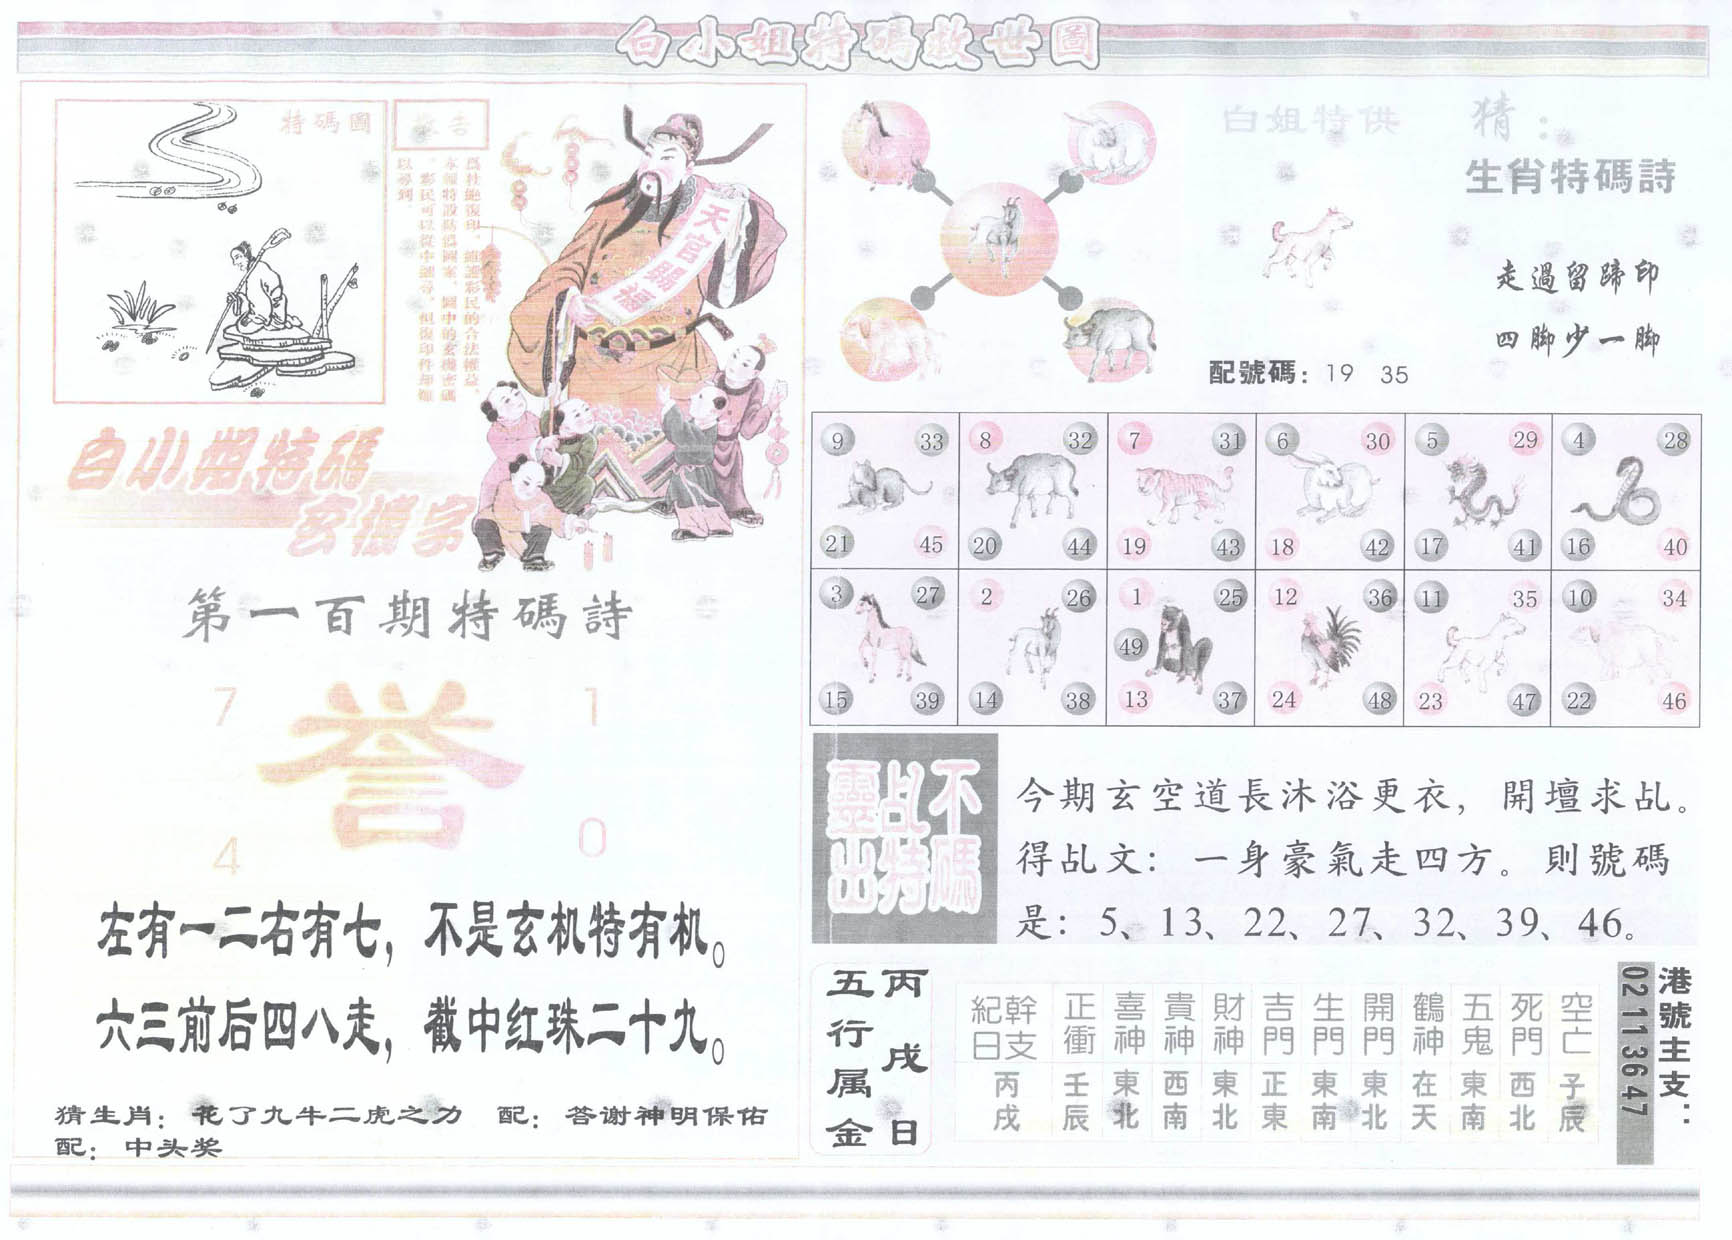 白小姐特碼救世圖
特碼圖
天官賜福
白小姐特碼
玄機字
第一百期特碼詩
7 1
誉
4 0
左有一二右有七，不是玄机特有机。
六三前后四八走，截中红珠二十九。
猜生肖：花了九牛二虎之力 配：答谢神明保佑
配：中头奖
白姐特供 猜：
生肖特碼詩
走過留蹄印
四脚少一脚
配號碼：19 35
9 33 8 32 7 31 6 30 5 29 4 28
21 45 20 44 19 43 18 42 17 41 16 40
3 27 2 26 1 25 12 36 11 35 10 34
49
15 39 14 38 13 37 24 48 23 47 22 46
不碼
乩特
靈出
今期玄空道長沐浴更衣，開壇求乩。
得乩文：一身豪氣走四方。則號碼
是：5、13、22、27、32、39、46。
丙戌日
五行属金
紀日幹支 正衝 喜神 貴神 財神 吉門 生門 開門 鶴神 五鬼 死門 空亡
丙戌 壬辰 東北 西南 東北 正東 東南 東北 在天 東南 西北 子辰
港號主支：
02 11 36 47